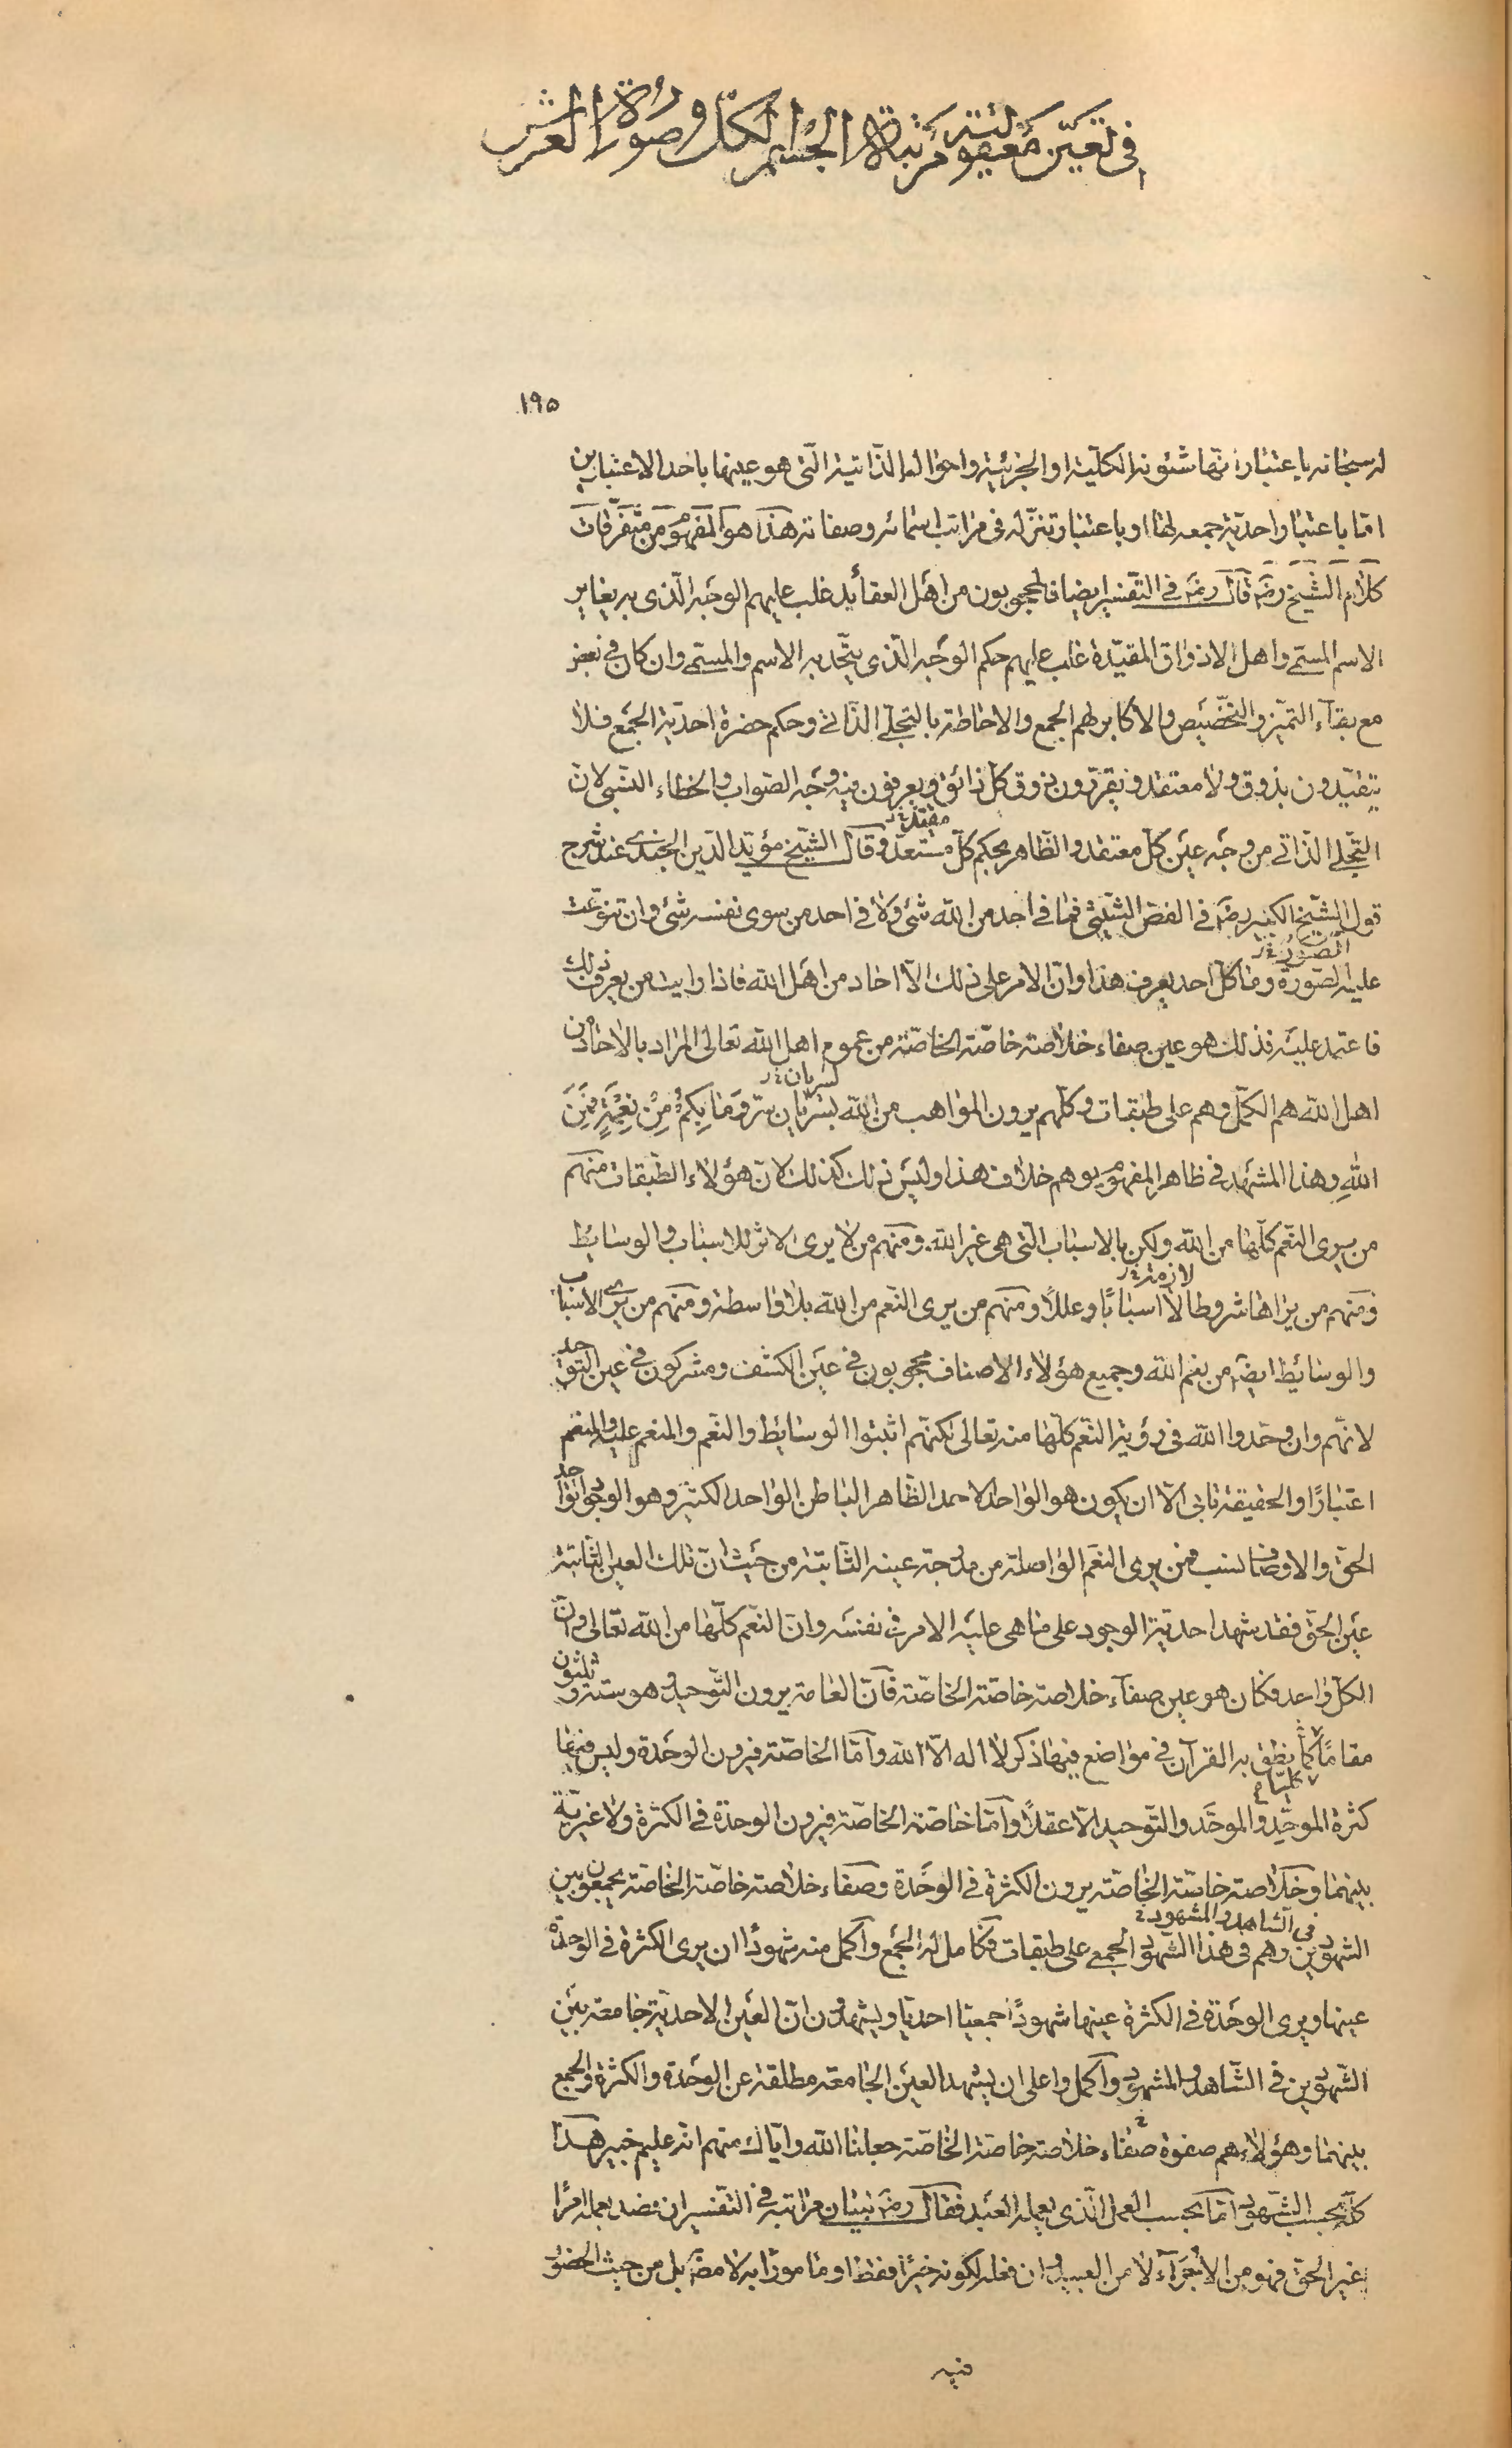 في تعيّن معقولية مرتبة الجسم الكل وصورة العرش
١٩٥
له سبحانه باعتبار انها شئونه الكلية او الجزئية واحواله الذاتية الّتى هو عينها باحد الاعتبارين
امّا باعتبار احديّة جمعه لها او باعتبار تنزّله فى مراتب اسمائه وصفاته هذا هو المفهوم من متفرّقات
كلام الشّيخ رضه قال رضه في التّفسير ايضا فالمحجوبون من اهل العقائد غلب عليهم الوجه الّذى به يغاير
الاسم المسمّى واهل الاذواق المقيّدة غلب عليهم حكم الوجه الّذى يتّحد به الاسم والمسمّى وان كان في
مع بقآء التميّز والتخصّيص والاكابر لهم الجمع والاحاطة بالتجلّى الذّاتى وحكم حضرة احديّة الجمع فلا
يتقيّدون بذوق ولا معتقد ويقرّرون ذوق كلّ ذائق ويعرفون فيه وجه الصّواب والخطاء النّسبى لانّ
التّجلى الذّاتى من وجه عين كلّ معتقد والظّاهر بحكم كلّ مستعدّ وقال الشّيخ مؤيّد الدّين الجندى عند شرح
معتقد خ ر
قول الشّيخ الكبير رضه فى الفصّ الشّيثى فما فى احد من الله شئ ولا فى احد من سوى نفسه شئ وان تنوّعت
الصّور خ ر
عليه الصّورة وما كلّ احد يعرف هذا وانّ الامر على ذلك الّا احاد من اهل الله فاذا رايت من يعرف ذلك
فاعتمد عليه فذلك هو عين صفاء خلاصة خاصّة الخاصّة من عموم اهل الله تعالى المراد بالاحاد من
اهل الله هم الكمّل وهم على طبقات وكلّهم يرون المواهب من الله بسريان سرّ وَمَا بِكُمْ مِنْ نِعْمَةٍ فَمِنَ
لسريان خ ر
اللهِ وهذا المشهد فى ظاهر المفهوم يوهم خلاف هذا وليس ذلك كذلك لانّ هؤلاء الطّبقات منهم
من يرى النّعم كلّها من الله ولكن بالاسباب الّتى هى غير الله ومنهم من لا يرى الاثر للاسباب والوسايط
ومنهم من يراها شروطا لا اسبابًا وعللًا ومنهم من يرى النّعم من الله بلا واسطة ومنهم من يرى الاسباب
لازمة خ ر
والوسائط ايضًا من نعم الله وجميع هؤلاء الاصناف محجوبون فى عين الكشف ومشركون فى عين التوحيد
لانّهم وان وحّدوا الله فى رؤية النّعم كلّها منه تعالى لكنّهم اثبتوا الوسايط والنّعم والمنعم عليه والمنعم
اعتبارًا والحقيقة تابى الّا ان يكون هو الواحد الاحد الظّاهر الباطن الواحد الكثير وهو الوجود الواحد
الحقّ والاوصاف نسب فمن يرى النّعم الواصلة من مدرجة عينه الثّابتة من حيث انّ تلك العين الثّابتة
عين الحقّ فقد شهد احديّة الوجود على ما هى عليه الامر فى نفسه وانّ النّعم كلّها من الله تعالى وانّ
الكلّ واحد فكان هو عين صفآء خلاصة خاصّة الخاصّة فانّ العامّة يرون التّوحيد وهو ستة وثلثون
مقامًا كما نطق به القرآن فى مواضع فيها ذكر لا اله الّا الله وامّا الخاصّة فيرون الوحدة وليس فيها
كثرة الموحّد والموحَّد والتّوحيد الّا عقلًا وامّا خاصّة الخاصّة فيرون الوحدة فى الكثرة ولا غيريّة
بينهما وخلاصة خاصّة الخاصّة يرون الكثرة فى الوحدة وصفاء خلاصة خاصّة الخاصّة يجمعون بين
فى الشاهد والمشهود خ
الشّهودين وهم فى هذا الشّهود الجمعى على طبقات فكامل له الجمع واكمل منه شهودًا ان يرى الكثرة فى الوحدة
عينها ويرى الوحدة فى الكثرة عينها شهودًا جمعيّا احديّا ويشهدون انّ العين الاحديّة جامعة بين
الشّهودين فى الشّاهد والمشهود واكمل واعلى ان يشهد العين الجامعة مطلقة عن الوحدة والكثرة والجمع
بينهما وهؤلاء هم صفوة صفاء خلاصة خاصّة الخاصّة جعلنا الله وايّاك منهم انّه عليم خبير هذا
كلّه بحسب الشّهود امّا بحسب العمل الّذى يعمله العبد فقال رضه ببيان مراتبه فى التّفسير ان قصد بعمله امرًا
غير الحقّ فهو من الاُجَرَآء لا من العبيد وان فعله لكونه خيرًا فقط او مامورًا به لا مضّ بل من حيث الحضور
فيه